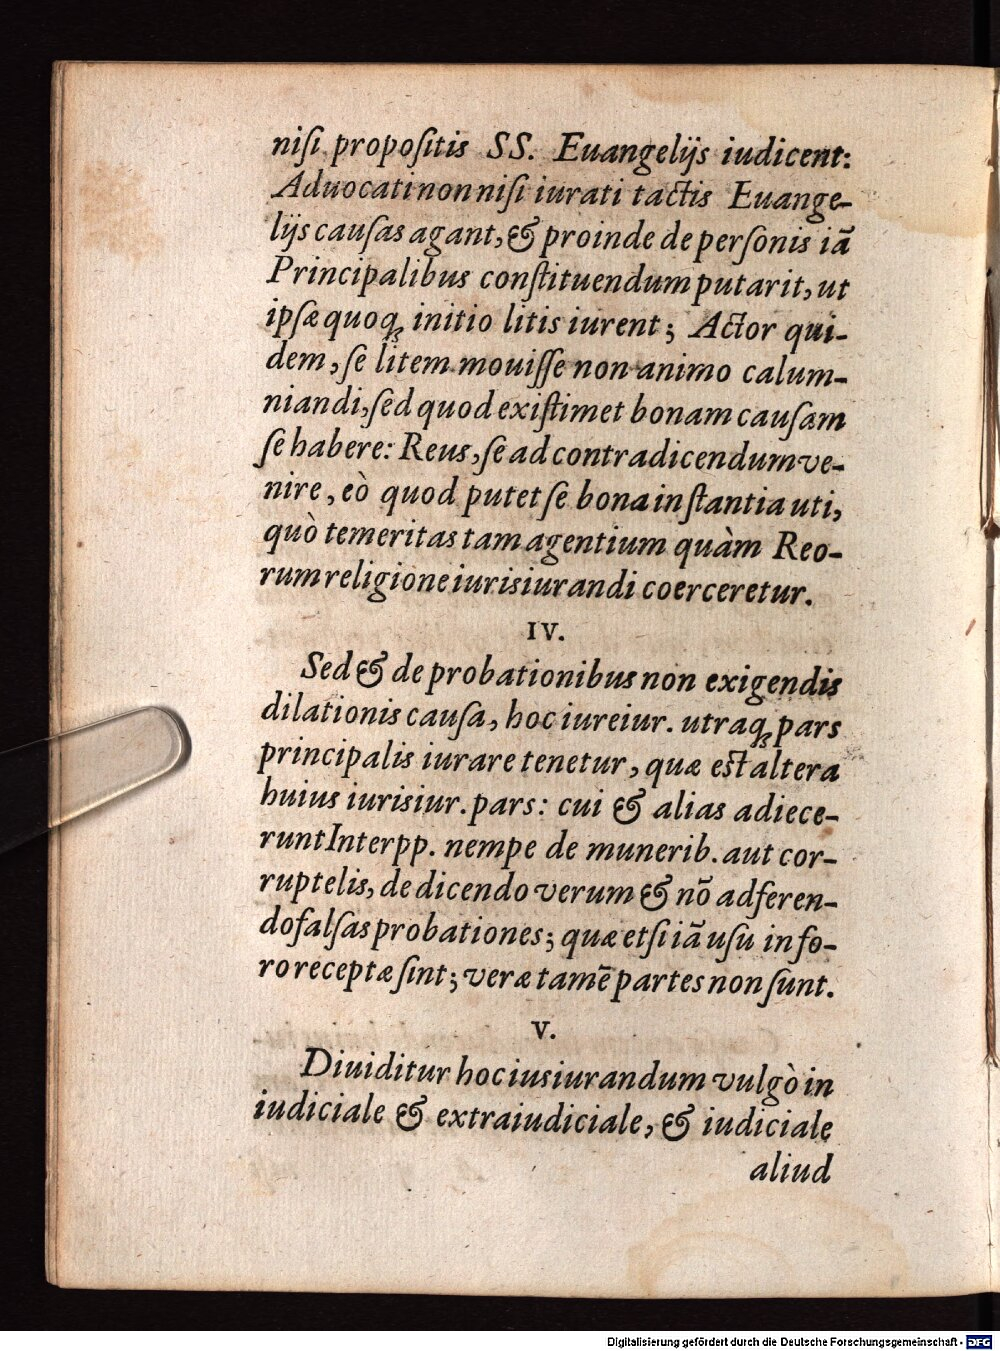 niſi propoſitis SS. Euangelijs iudicent:
Aduocati non niſi iurati tactis Euange-
lijs cauſas agant, & proinde de perſonis iã
Principalibus conſtituendum putarit, ut
ipſæ quoq; initio litis iurent; Actor qui-
dem, ſe litem mouiſſe non animo calum-
niandi, ſed quod exiſtimet bonam cauſam
ſe habere: Reus, ſe ad contradicendum ve-
nire, eò quod putet ſe bona inſtantia uti,
quò temeritas tam agentium quàm Reo-
rum religione iurisiurandi coerceretur.
IV.
Sed & de probationibus non exigendis
dilationis cauſa, hoc iureiur. utraq; pars
principalis iurare tenetur, quæ eſt altera
huius iurisiur. pars: cui & alias adiece-
runt Interpp. nempe de munerib. aut cor-
ruptelis, de dicendo verum & nõ adferen-
do falſas probationes; quæ etſi iã uſu in fo-
ro receptæ ſint; veræ tamẽ partes non ſunt.
V.
Diuiditur hoc iusiurandum vulgò in
iudiciale & extraiudiciale, & iudiciale
aliud
Digitalisierung gefördert durch die Deutsche Forschungsgemeinschaft - DFG